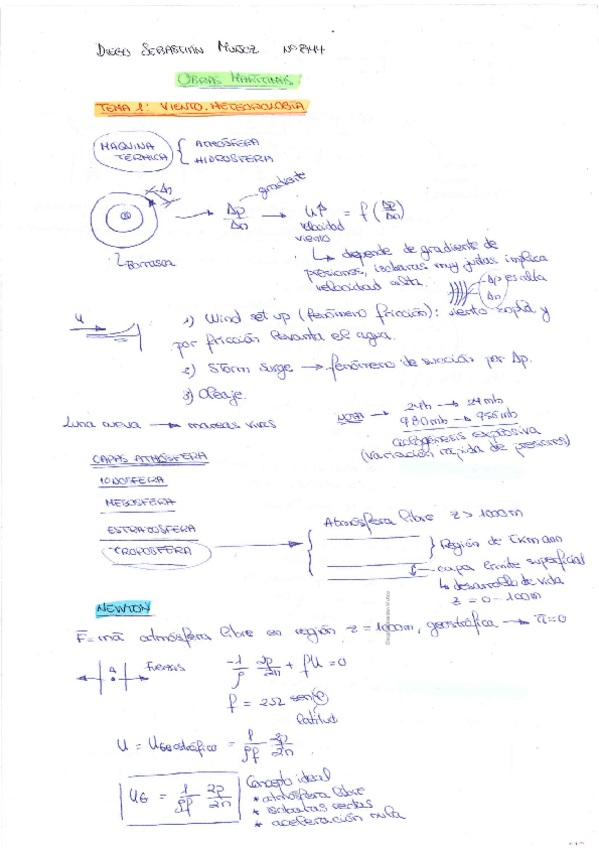 DIEGO SEBASTIÁN MUÑOZ Nº 8444
OBRAS MARÍTIMAS
TEMA 1: VIENTO. METEOROLOGÍA
MÁQUINA TÉRMICA { ATMÓSFERA
HIDROSFERA
Δn
gradiente
Δp/Δn → U↑ = f (Δp/Δn)
velocidad viento
Borrasca
↳ depende de gradiente de
presiones, isobaras muy juntas implica
velocidad alta.
Δp es alta
Δn
u
1) Wind set up (fenómeno fricción): viento sopla y
por fricción levanta el agua.
2) Storm Surge → fenómeno de succión por Δp.
3) Oleaje.
Luna nueva → mareas vivas
NOTA → 24h → 24mb
980mb → 956mb
ciclogénesis explosiva
(variación rápida de presiones)
CAPAS ATMÓSFERA
IONOSFERA
MESOSFERA
ESTRATOSFERA
TROPOSFERA
Atmósfera libre z > 1000m
Región de Ekmann
capa límite superficial
↳ desarrollo de vida
z = 0-100m
NEWTON
F=ma atmósfera libre en región z = 1000m, geostrófica → a=0
Fuerzas
-1/ρ ∂p/∂n + fU = 0
f = 2Ω senφ
latitud
U = U Geostrófico = 1/ρf ∂p/∂n
UG = 1/ρf ∂p/∂n
Concepto ideal
* atmósfera libre
* isobaras rectas
* aceleración nula